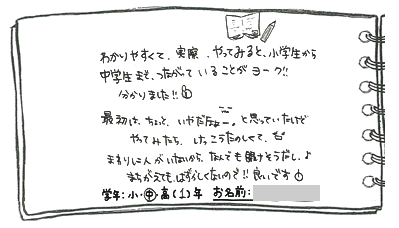 わかりやすくて、実際、やってみると、小学生から
中学生まで、つながっていることがヨーク!!
分かりました!!
最初は、ちょっと、いやだなぁー。と思っていたけど
やってみたら、けっこうたのしくて、
まわりに人がいないから、なんでも聞けそうだし、♪
まちがえても、はずかしくないので!!良いです
学年:小・中・高(1)年 お名前: